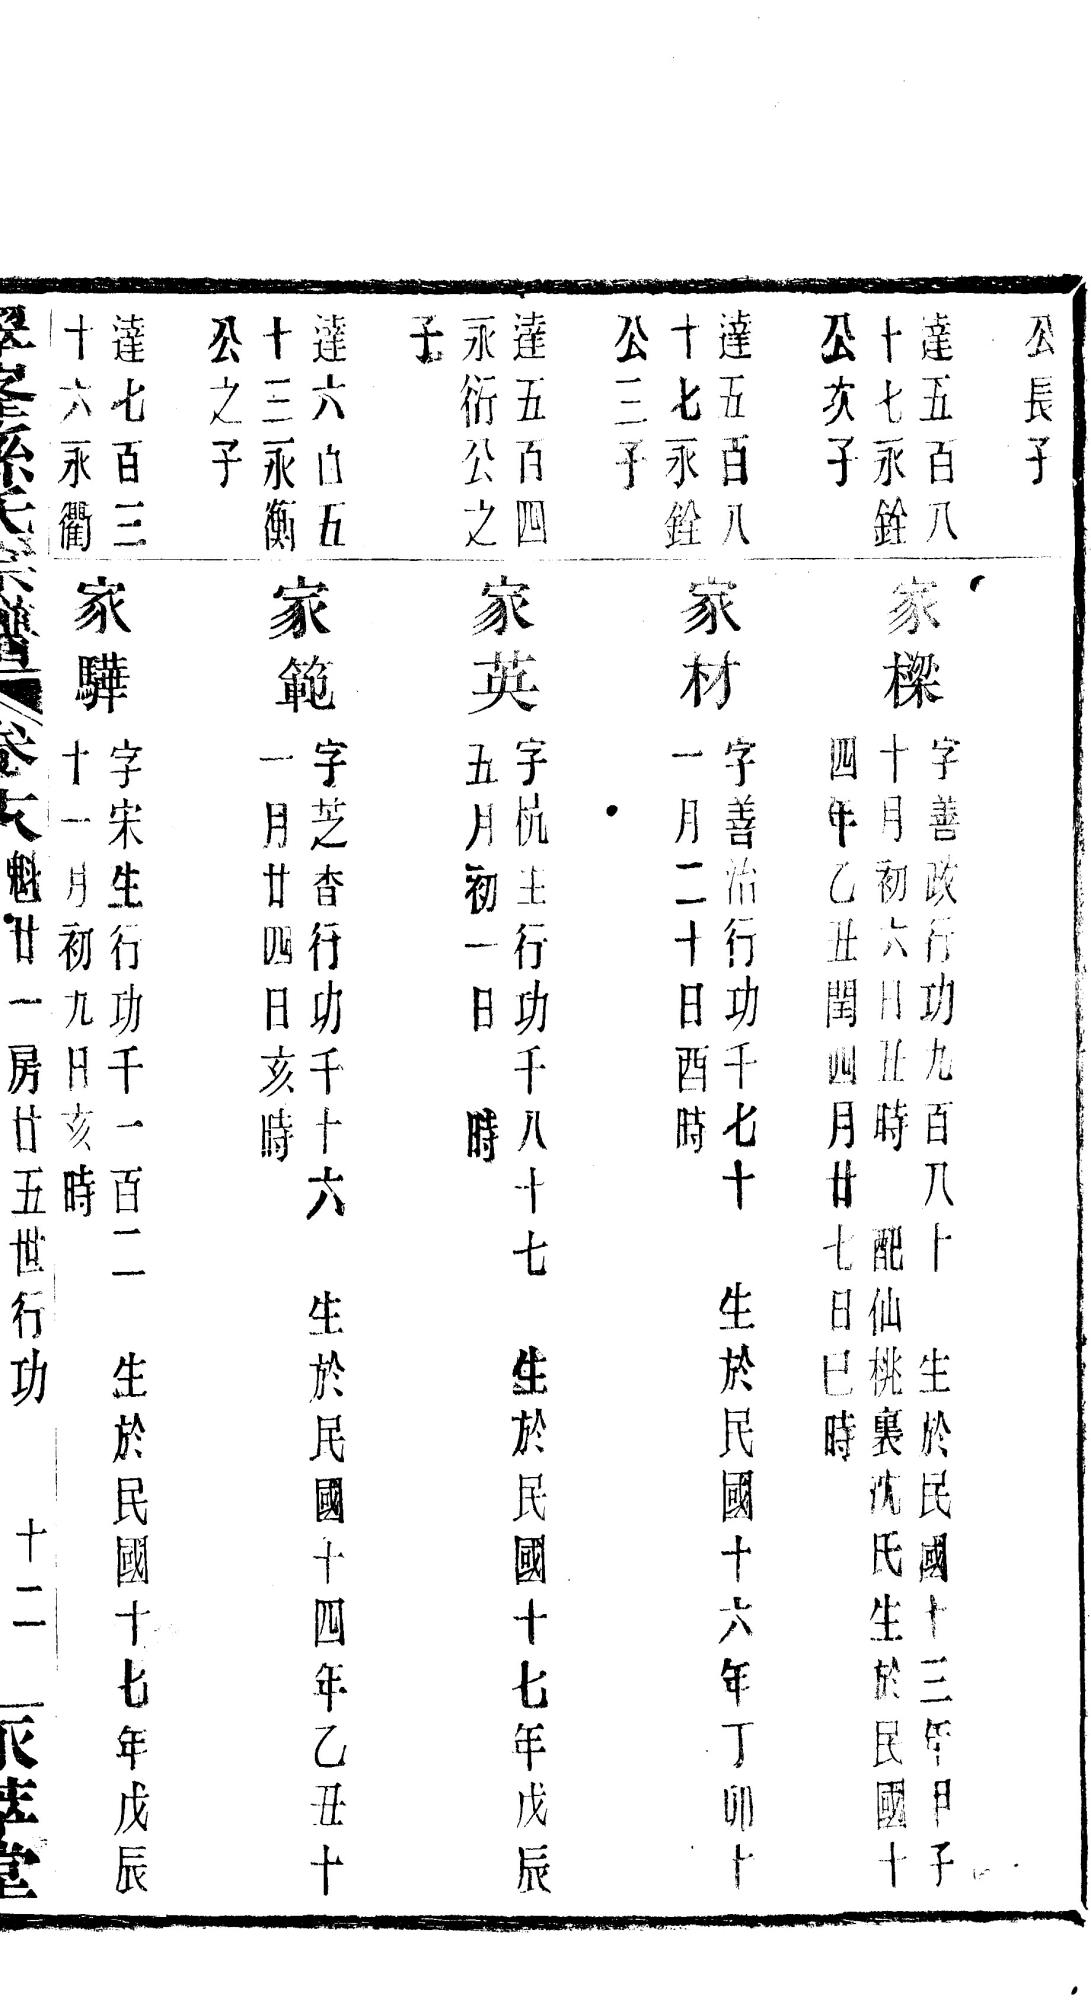 公長子
達五百八
十七永銓
公次子
家樑
字善政行功九百八十　生於民國十三年甲子
十月初六日丑時　配仙桃裏沈氏生於民國十
四年乙丑閏四月廿七日巳時
達五百八
十七永銓
公三子
家材
字善治行功千七十　生於民國十六年丁卯十
一月二十日酉時
達五百四
永衍公之
子
家英
字杭生行功千八十七　生於民國十七年戊辰
五月初一日　時
達六百五
十三永衡
公之子
家範
字芝香行功千十六　生於民國十四年乙丑十
一月廿四日亥時
達七百三
十六永衢
家驊
字宋生行功千一百二　生於民國十七年戊辰
十一月初九日亥時
孫氏宗譜
卷　魁廿一房廿五世行功　十二
堂